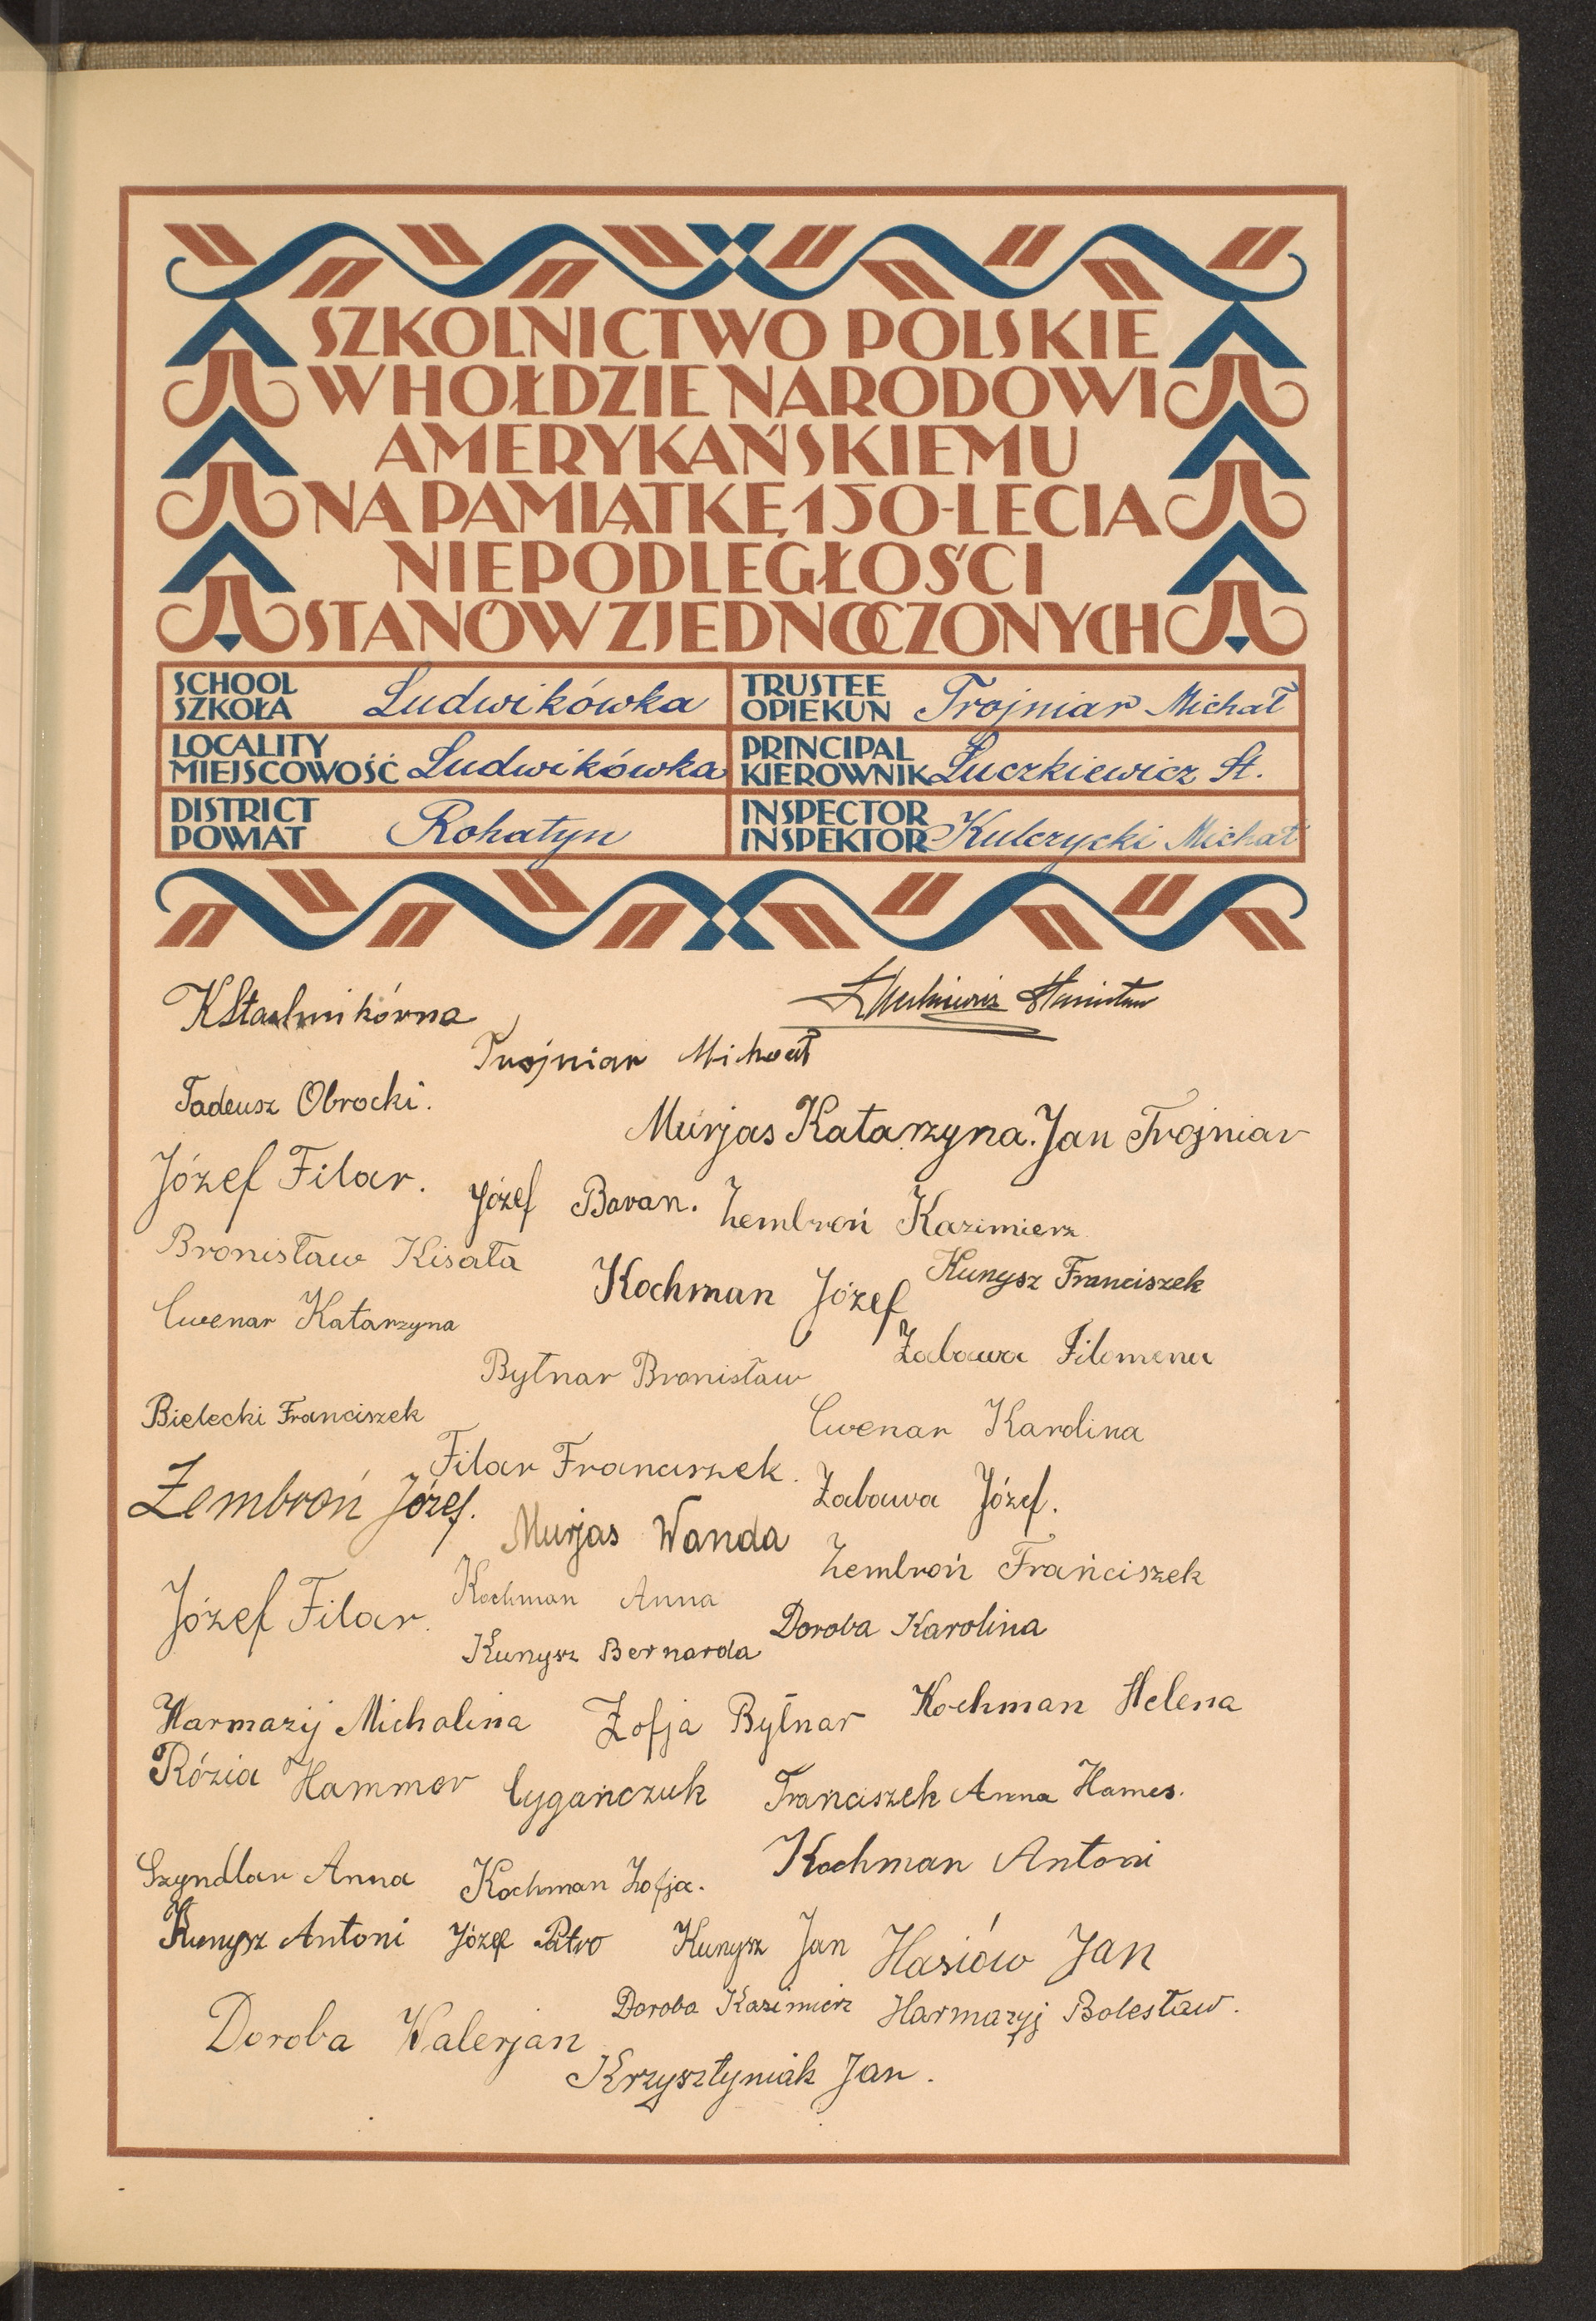 SZKOLNICTWO POLSKIE
W HOŁDZIE NARODOWI
AMERYKAŃSKIEMU
NA PAMIĄTKĘ 150-LECIA
NIEPODLEGŁOŚCI
STANÓW ZJEDNOCZONYCH
SCHOOL
SZKOŁA Ludwikówka
TRUSTEE
OPIEKUN Trojniar Michał
LOCALITY
MIEJSCOWOŚĆ Ludwikówka
PRINCIPAL
KIEROWNIK Łuczkiewicz St.
DISTRICT
POWIAT Rohatyn
INSPECTOR
INSPEKTOR Kulczycki Michał
KStachnikówna
Łuczkiewicz Stanisław
Trojniar Michał
Tadeusz Obrocki.
Murjas Katarzyna. Jan Trojniar
Józef Filar.
Józef Baran. Zembroń Kazimierz
Bronisław Kisała
Kochman Józef
Kunysz Franciszek
Cwenar Katarzyna
Zabawa Filomena
Bytnar Bronisław
Bielecki Franciszek
Cwenar Karolina
Filar Franciszek.
Zembroń Józef.
Zabawa Józef.
Murjas Wanda
Zembroń Frańciszek
Józef Filar.
Kochman Anna
Doroba Karolina
Kunysz Bernarda
Harmazij Michalina Zofja Bytnar Kochman Helena
Rózia Hammer Cygańczuk Franciszek Anna Hames.
Szyndlar Anna Kochman Zofja. Kochman Antoni
Kunysz Antoni Józef Patro Kunysz Jan Hasiów Jan
Doroba Kazimierz Harmazyj Bolesław.
Doroba Walerjan
Krzysztyniak Jan.